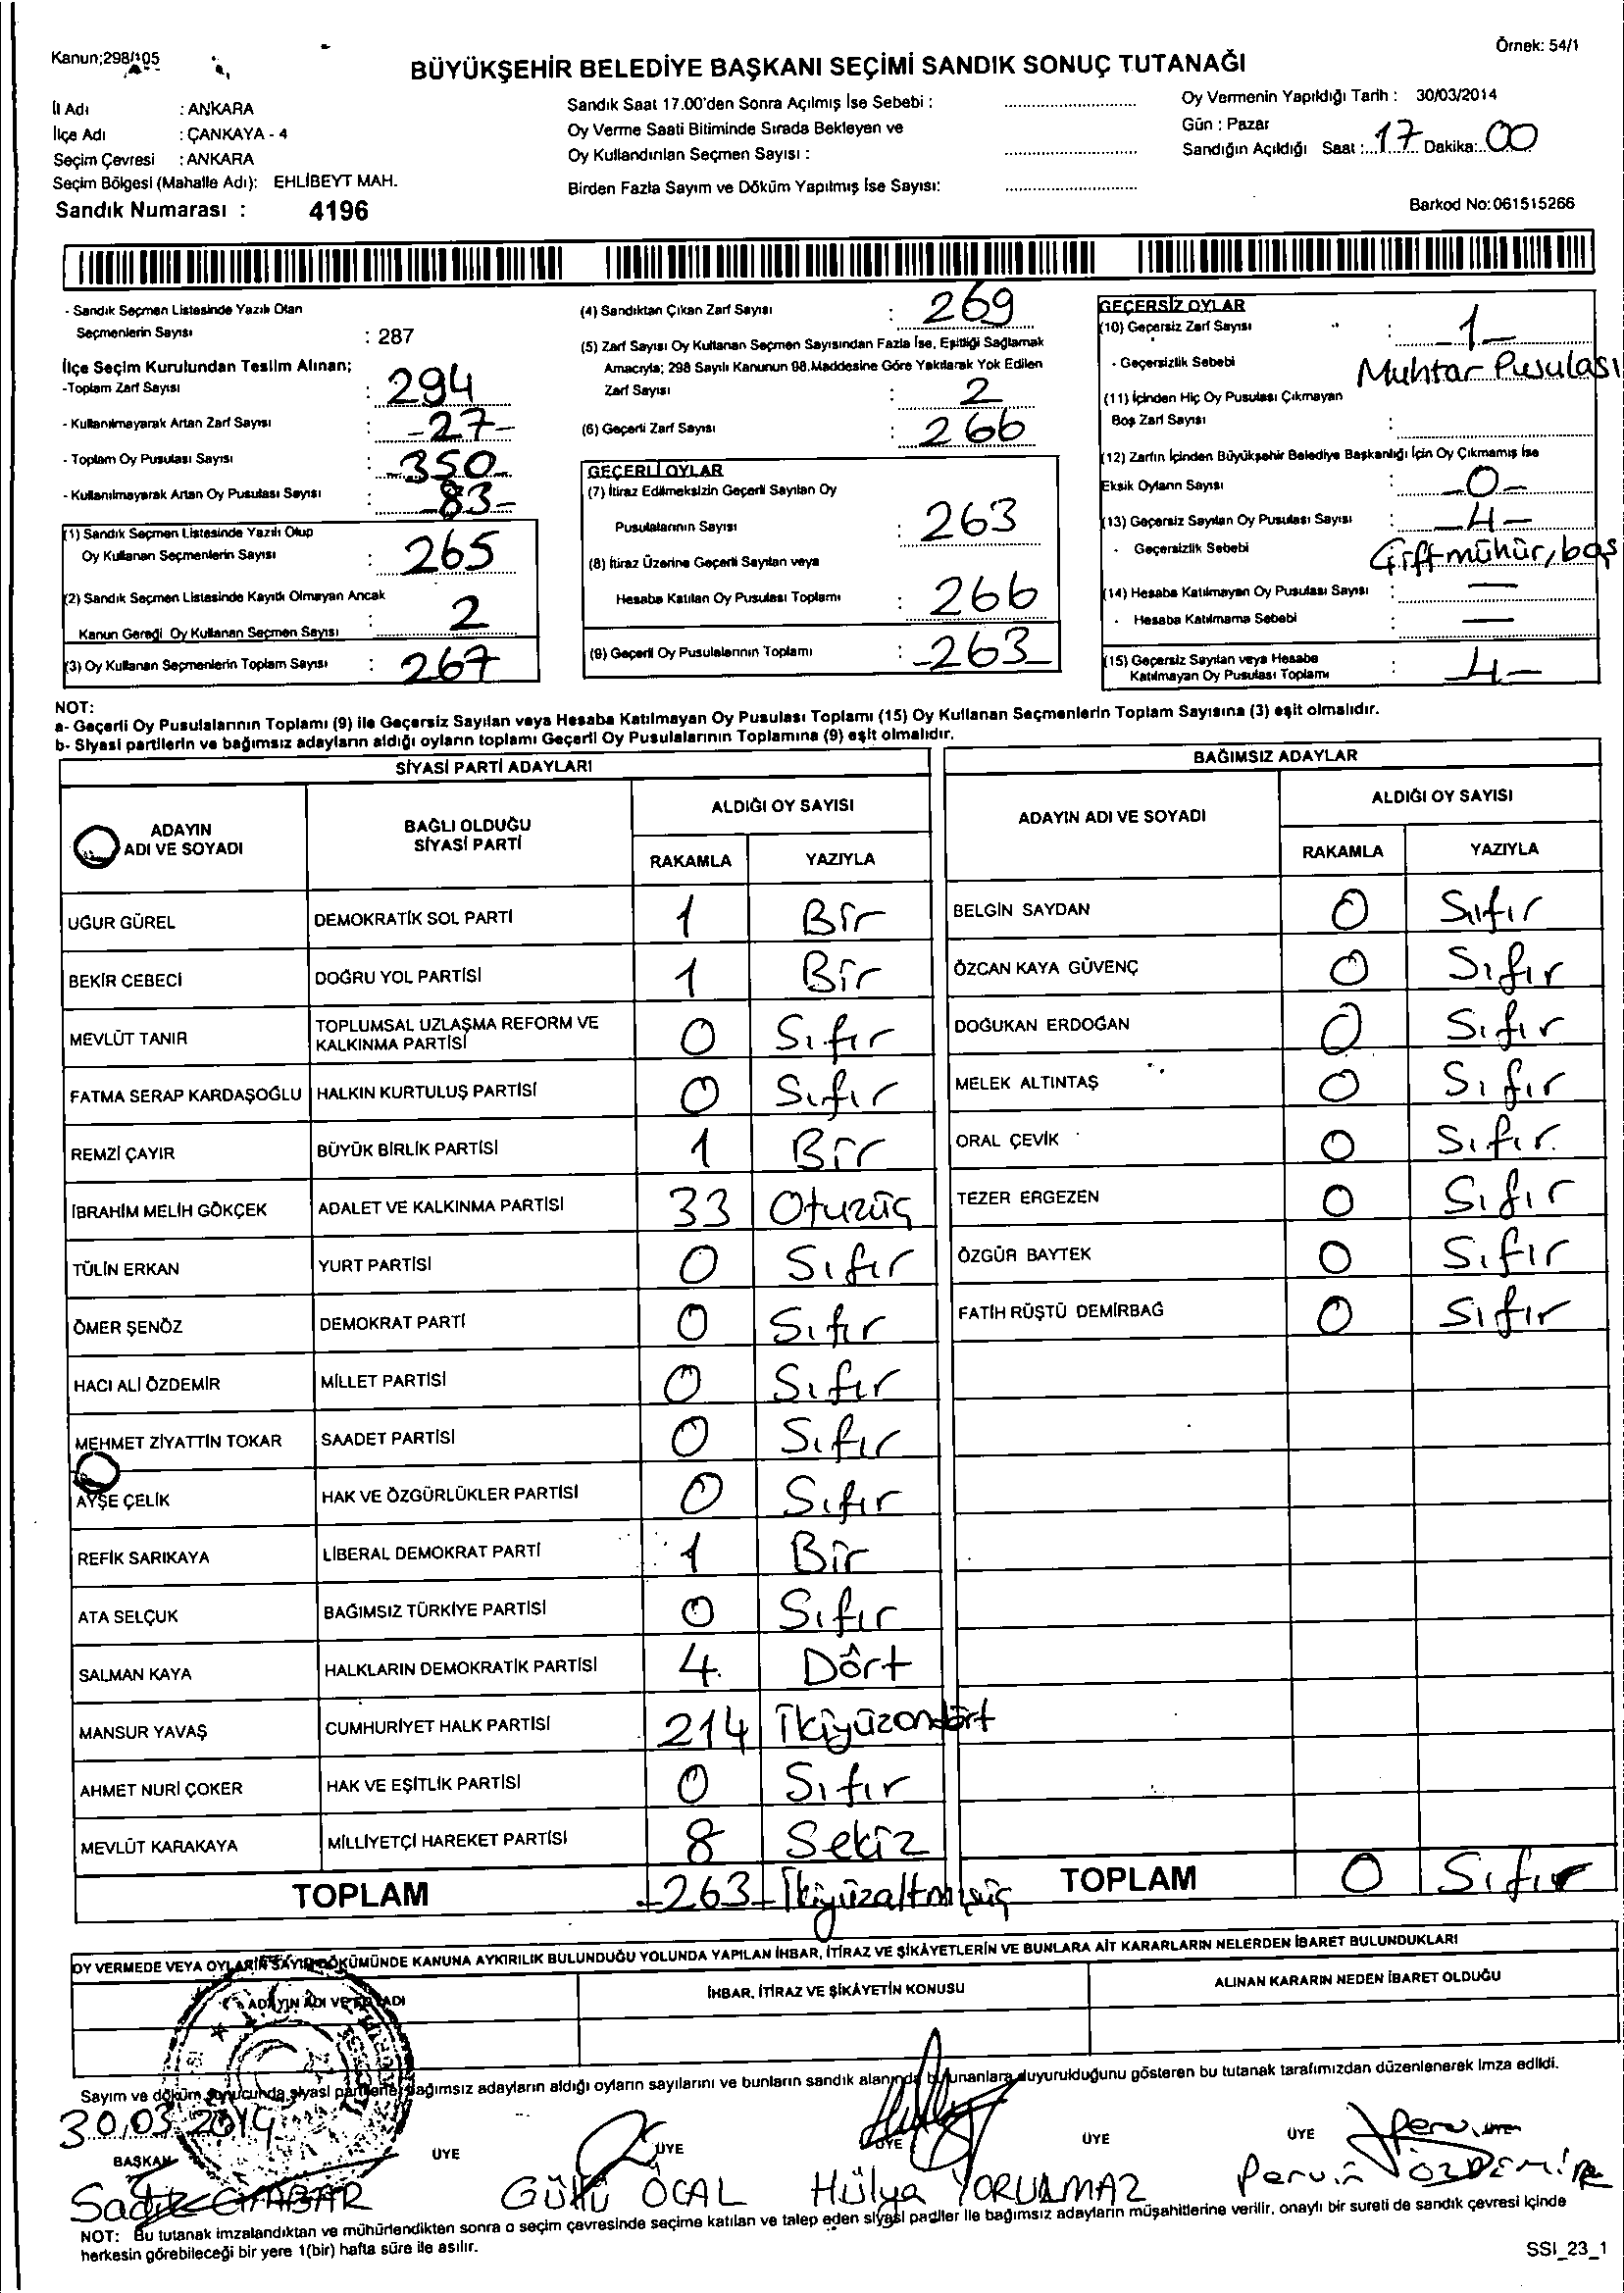 Kanun;298/105
Örnek: 54/1
BÜYÜKŞEHİR BELEDİYE BAŞKANI SEÇİMİ SANDIK SONUÇ TUTANAĞI
İl Adı : ANKARA
İlçe Adı : ÇANKAYA - 4
Seçim Çevresi : ANKARA
Seçim Bölgesi (Mahalle Adı): EHLİBEYT MAH.
Sandık Numarası : 4196
Sandık Saat 17.00'den Sonra Açılmış İse Sebebi :
Oy Verme Saati Bitiminde Sırada Bekleyen ve
Oy Kullandırılan Seçmen Sayısı :
Birden Fazla Sayım ve Döküm Yapılmış İse Sayısı:
Oy Vermenin Yapıldığı Tarih : 30/03/2014
Gün : Pazar
Sandığın Açıldığı Saat : 17 Dakika: 00
Barkod No:061515266
- Sandık Seçmen Listesinde Yazılı Olan
Seçmenlerin Sayısı : 287
İlçe Seçim Kurulundan Teslim Alınan;
-Toplam Zarf Sayısı : 294
- Kullanılmayarak Artan Zarf Sayısı : -27-
- Toplam Oy Pusulası Sayısı : -350-
- Kullanılmayarak Artan Oy Pusulası Sayısı : -83-
(1) Sandık Seçmen Listesinde Yazılı Olup
Oy Kullanan Seçmenlerin Sayısı : 265
(2) Sandık Seçmen Listesinde Kayıtlı Olmayan Ancak
Kanun Gereği Oy Kullanan Seçmen Sayısı : 2
(3) Oy Kullanan Seçmenlerin Toplam Sayısı : 267
(4) Sandıktan Çıkan Zarf Sayısı : 269
(5) Zarf Sayısı Oy Kullanan Seçmen Sayısından Fazla İse, Eşitliği Sağlamak
Amacıyla; 298 Sayılı Kanunun 98.Maddesine Göre Yakılarak Yok Edilen
Zarf Sayısı : 2
(6) Geçerli Zarf Sayısı : 266
GEÇERLİ OYLAR
(7) İtiraz Edilmeksizin Geçerli Sayılan Oy
Pusulalarının Sayısı : 263
(8) İtiraz Üzerine Geçerli Sayılan veya
Hesaba Katılan Oy Pusulası Toplamı : 266
(9) Geçerli Oy Pusulalarının Toplamı : -263-
GEÇERSİZ OYLAR
(10) Geçersiz Zarf Sayısı : -1-
- Geçersizlik Sebebi Muhtar Pusulası
(11) İçinden Hiç Oy Pusulası Çıkmayan
Boş Zarf Sayısı :
(12) Zarfın İçinden Büyükşehir Belediye Başkanlığı İçin Oy Çıkmamış İse
Eksik Oyların Sayısı : -0-
(13) Geçersiz Sayılan Oy Pusulası Sayısı : -4-
- Geçersizlik Sebebi Çift mühür, boş
(14) Hesaba Katılmayan Oy Pusulası Sayısı : —
- Hesaba Katılmama Sebebi : —
(15) Geçersiz Sayılan veya Hesaba
Katılmayan Oy Pusulası Toplamı : 4-
NOT:
a- Geçerli Oy Pusulalarının Toplamı (9) ile Geçersiz Sayılan veya Hesaba Katılmayan Oy Pusulası Toplamı (15) Oy Kullanan Seçmenlerin Toplam Sayısına (3) eşit olmalıdır.
b- Siyasi partilerin ve bağımsız adayların aldığı oyların toplamı Geçerli Oy Pusulalarının Toplamına (9) eşit olmalıdır.
SİYASİ PARTİ ADAYLARI
ADAYIN ADI VE SOYADI BAĞLI OLDUĞU SİYASİ PARTİ ALDIĞI OY SAYISI
RAKAMLA YAZIYLA
UĞUR GÜREL DEMOKRATİK SOL PARTİ 1 Bir
BEKİR CEBECİ DOĞRU YOL PARTİSİ 1 Bir
MEVLÜT TANIR TOPLUMSAL UZLAŞMA REFORM VE KALKINMA PARTİSİ 0 Sıfır
FATMA SERAP KARDAŞOĞLU HALKIN KURTULUŞ PARTİSİ 0 Sıfır
REMZİ ÇAYIR BÜYÜK BİRLİK PARTİSİ 1 Bir
İBRAHİM MELİH GÖKÇEK ADALET VE KALKINMA PARTİSİ 33 Otuzüç
TÜLİN ERKAN YURT PARTİSİ 0 Sıfır
ÖMER ŞENÖZ DEMOKRAT PARTİ 0 Sıfır
HACI ALİ ÖZDEMİR MİLLET PARTİSİ 0 Sıfır
MEHMET ZİYATTİN TOKAR SAADET PARTİSİ 0 Sıfır
AYŞE ÇELİK HAK VE ÖZGÜRLÜKLER PARTİSİ 0 Sıfır
REFİK SARIKAYA LİBERAL DEMOKRAT PARTİ 1 Bir
ATA SELÇUK BAĞIMSIZ TÜRKİYE PARTİSİ 0 Sıfır
SALMAN KAYA HALKLARIN DEMOKRATİK PARTİSİ 4 Dört
MANSUR YAVAŞ CUMHURİYET HALK PARTİSİ 214 İkiyüzondört
AHMET NURİ ÇOKER HAK VE EŞİTLİK PARTİSİ 0 Sıfır
MEVLÜT KARAKAYA MİLLİYETÇİ HAREKET PARTİSİ 8 Sekiz
TOPLAM -263- İkiyüzaltmışüç
BAĞIMSIZ ADAYLAR
ADAYIN ADI VE SOYADI ALDIĞI OY SAYISI
RAKAMLA YAZIYLA
BELGİN SAYDAN 0 Sıfır
ÖZCAN KAYA GÜVENÇ 0 Sıfır
DOĞUKAN ERDOĞAN 0 Sıfır
MELEK ALTINTAŞ 0 Sıfır
ORAL ÇEVİK 0 Sıfır.
TEZER ERGEZEN 0 Sıfır
ÖZGÜR BAYTEK 0 Sıfır
FATİH RÜŞTÜ DEMİRBAĞ 0 Sıfır
TOPLAM 0 Sıfır
OY VERMEDE VEYA OYLARIN SAYIM DÖKÜMÜNDE KANUNA AYKIRILIK BULUNDUĞU YOLUNDA YAPILAN İHBAR, İTİRAZ VE ŞİKÂYETLERİN VE BUNLARA AİT KARARLARIN NELERDEN İBARET BULUNDUKLARI
ADAYIN ADI VE SOYADI İHBAR, İTİRAZ VE ŞİKÂYETİN KONUSU ALINAN KARARIN NEDEN İBARET OLDUĞU
Sayım ve döküm sonucunda siyasi partilerle bağımsız adayların aldığı oyların sayılarını ve bunların sandık alanında bulunanlara duyurulduğunu gösteren bu tutanak tarafımızdan düzenlenerek imza edildi.
30.03.2014
BAŞKAN ÜYE ÜYE ÜYE ÜYE ÜYE
Gülfü ÖCAL Hülya YORULMAZ Pervin ÖZDEMİR
NOT: Bu tutanak imzalandıktan ve mühürlendikten sonra o seçim çevresinde seçime katılan ve talep eden siyasi partiler ile bağımsız adayların müşahitlerine verilir, onaylı bir sureti de sandık çevresi içinde
herkesin görebileceği bir yere 1(bir) hafta süre ile asılır.
SSI_23_1